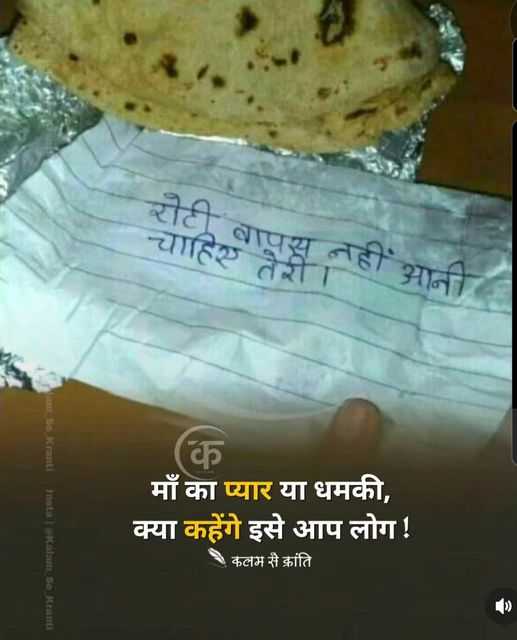 रोटी वापस नहीं आनी
चाहिए तेरी।
क
माँ का प्यार या धमकी,
क्या कहेंगे इसे आप लोग !
कलम से क्रांति
Insta | @Kalam_Se_Kranti